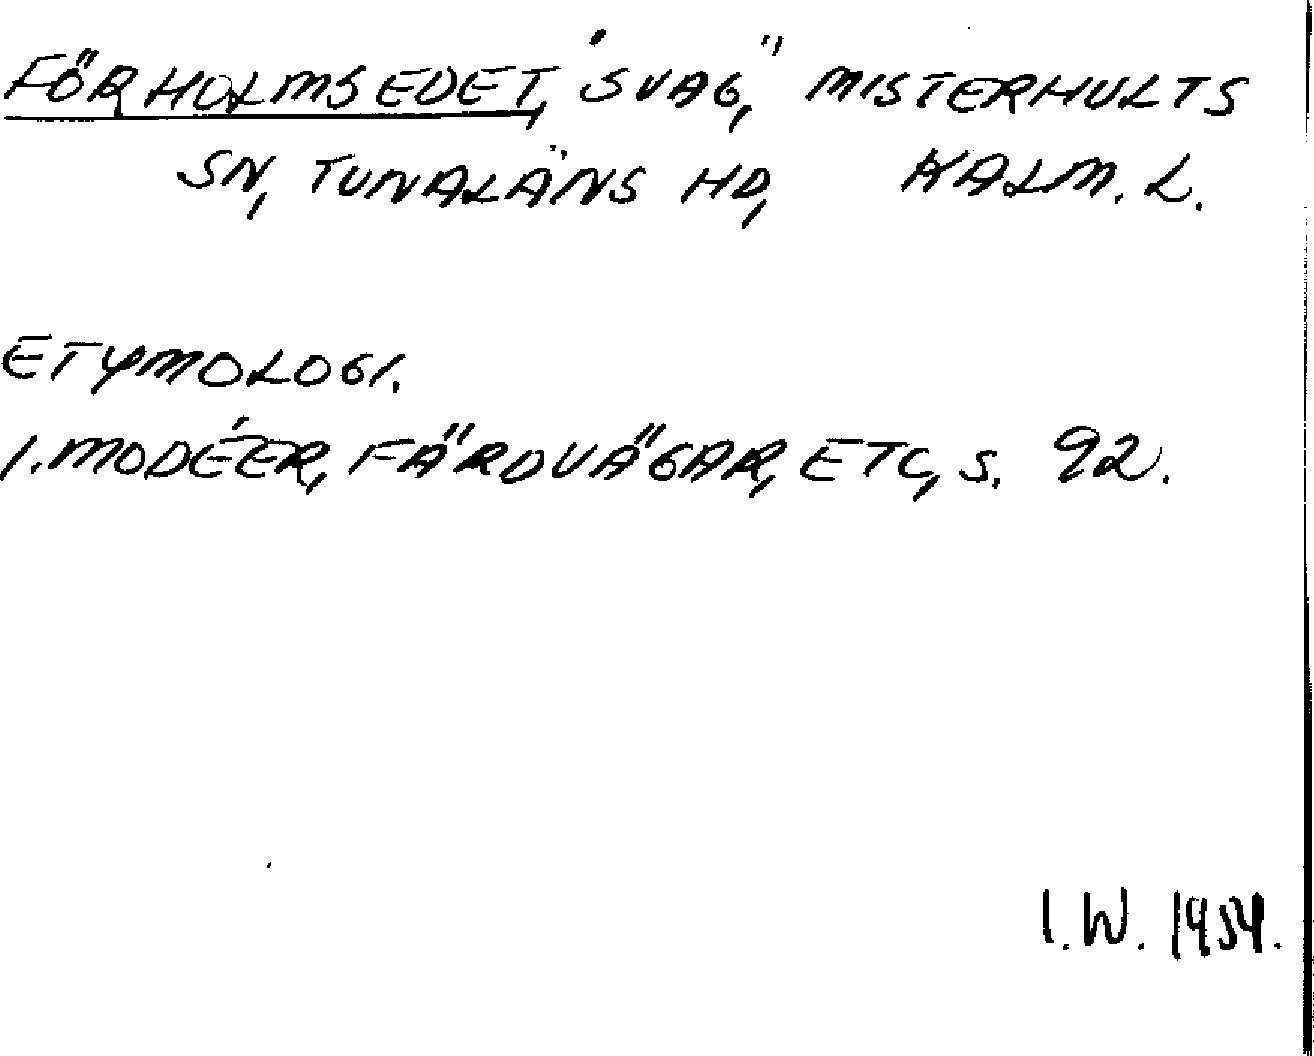 FÖRHOLMSEDET, "SVAG," MISTERHULTS
SN, TUNALÄNS HD, KALM. L.
ETYMOLOGI.
I. MODÉER, FÄRDVÄGAR, ETC, S. 92.
I.W. 1954.